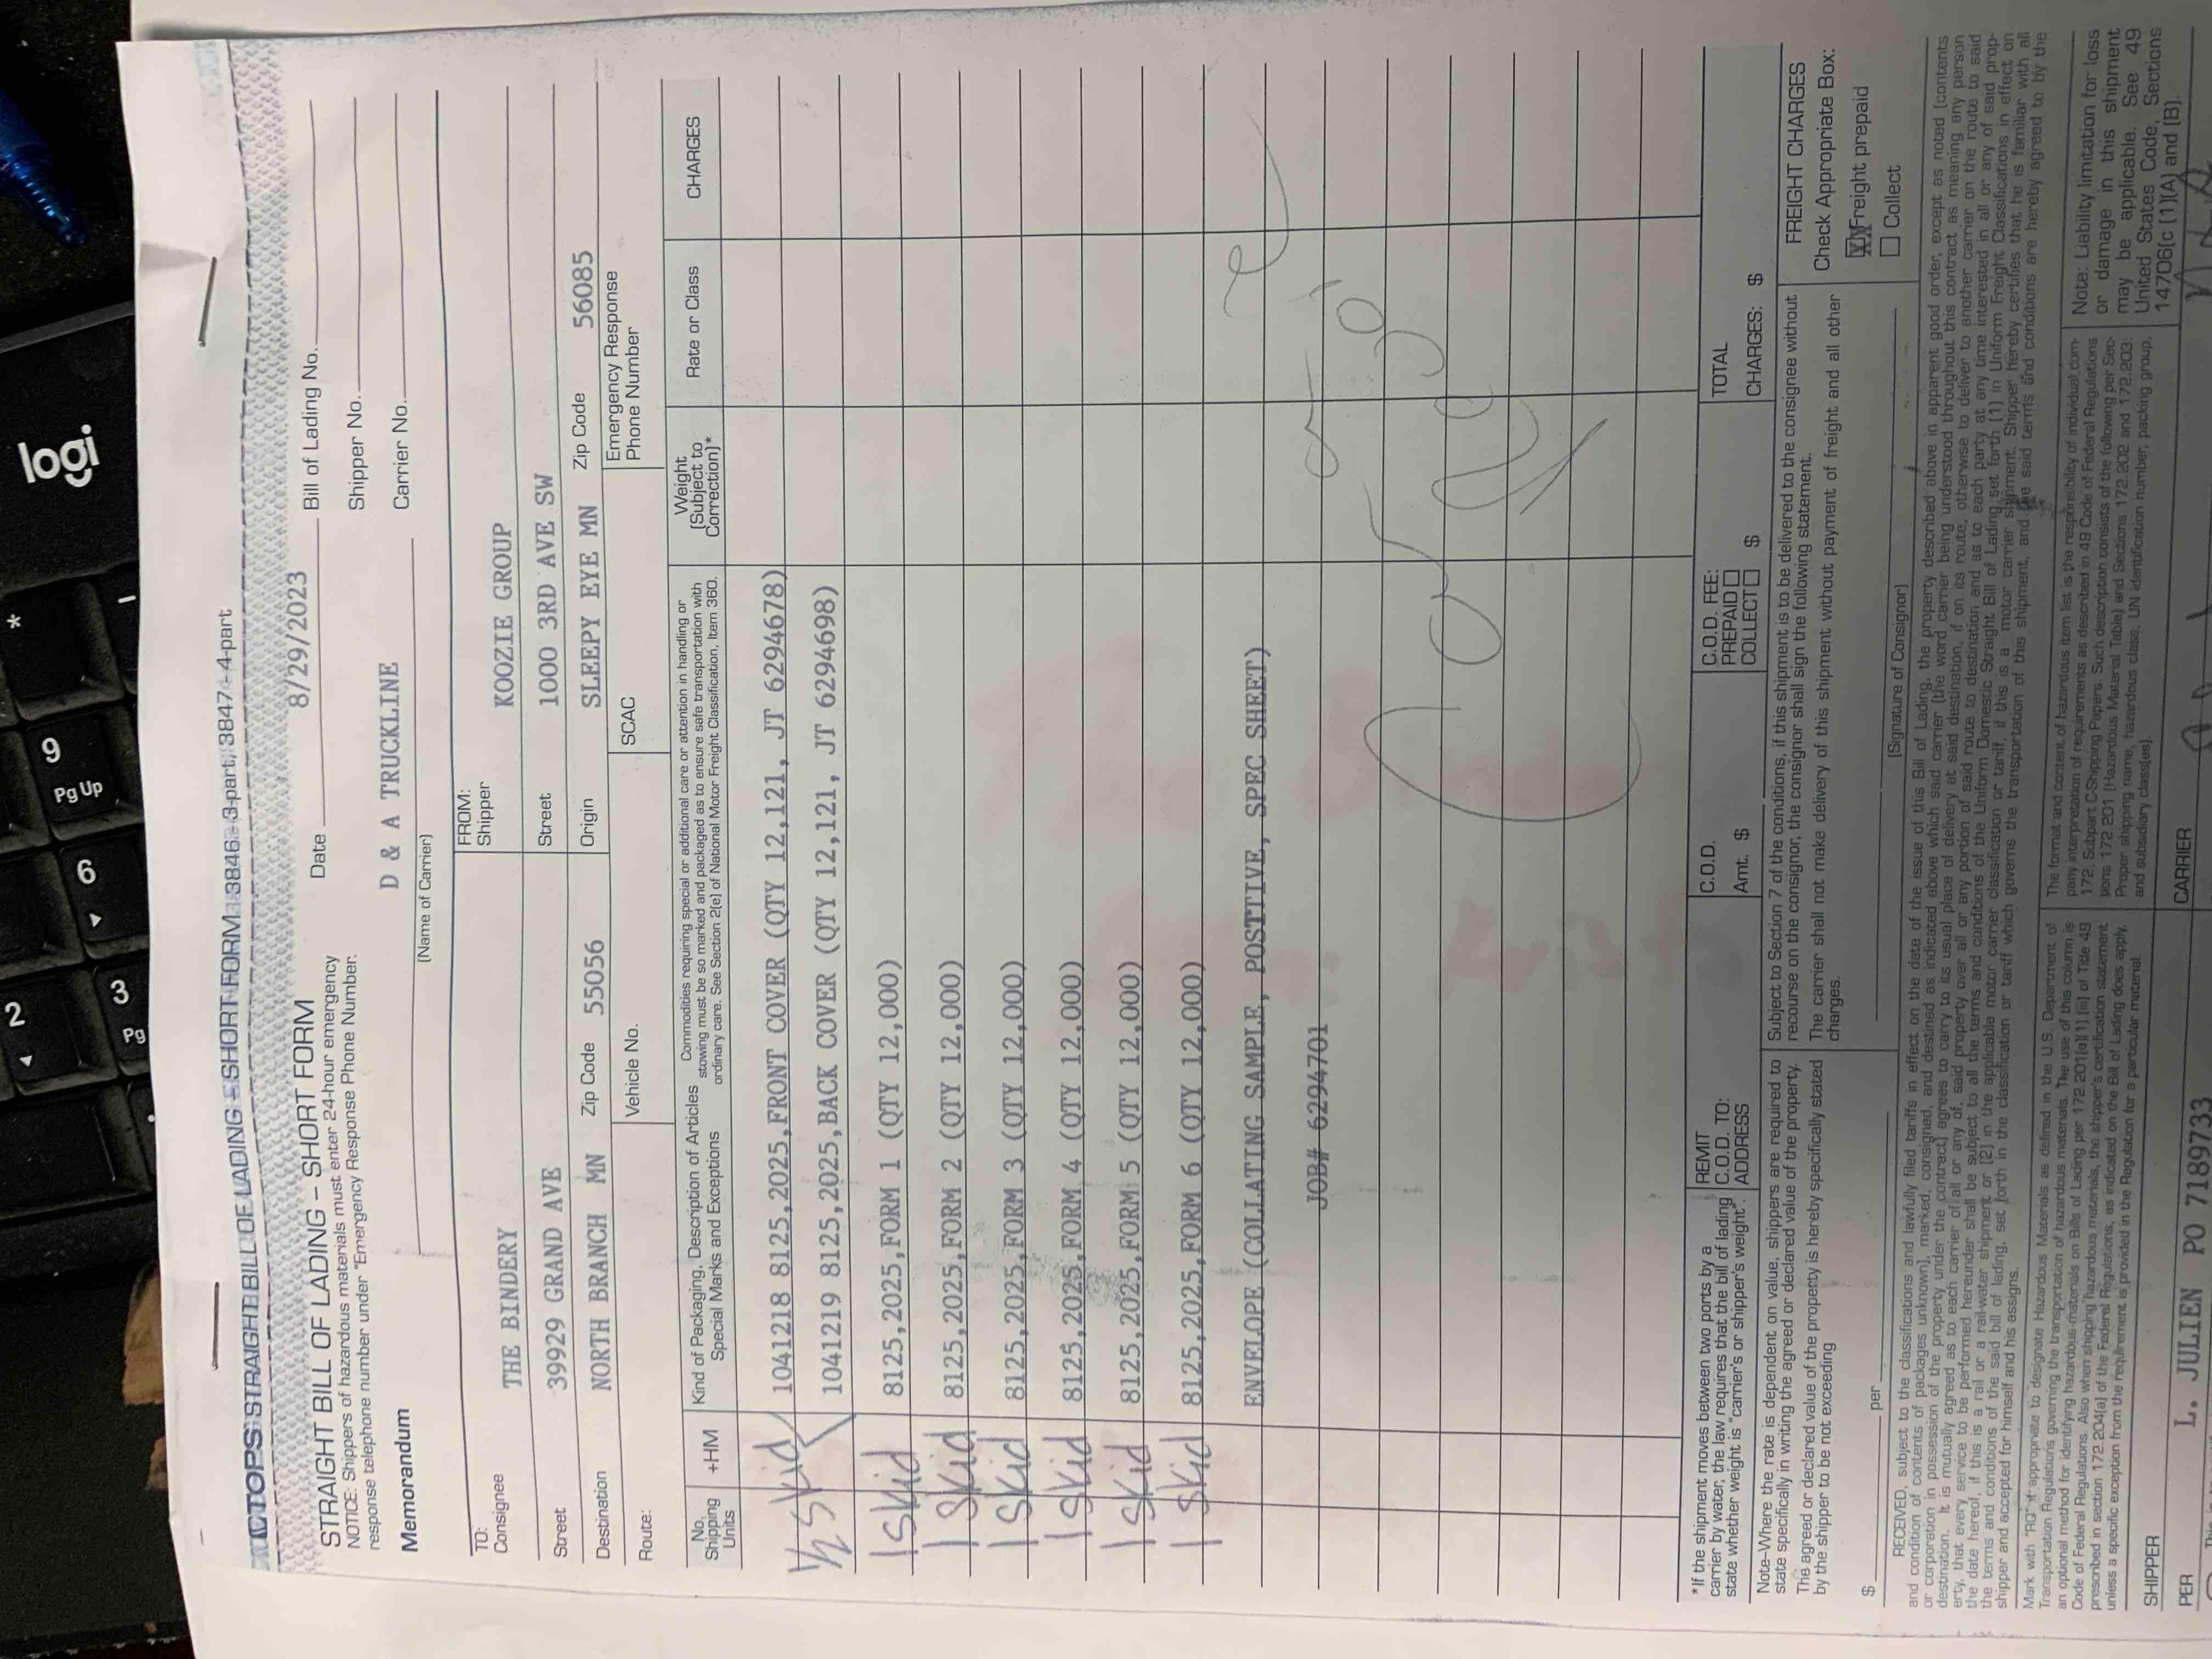 logi
*
9
Pg Up
6
3
Pg
2
ACTOPS STRAIGHT BILL OF LADING – SHORT FORM 3846 3-part, 3847 4-part
STRAIGHT BILL OF LADING – SHORT FORM
NOTICE: Shippers of hazardous materials must enter 24-hour emergency
response telephone number under "Emergency Response Phone Number.
Memorandum
Date 8/29/2023
Bill of Lading No.
Shipper No.
Carrier No.
D & A TRUCKLINE
(Name of Carrier)
TO:
Consignee THE BINDERY
Street 39929 GRAND AVE
Destination NORTH BRANCH MN Zip Code 55056
FROM:
Shipper KOOZIE GROUP
Street 1000 3RD AVE SW
Origin SLEEPY EYE MN Zip Code 56085
Route:
Vehicle No.
SCAC
Emergency Response
Phone Number
No.
Shipping
Units
+HM
Kind of Packaging, Description of Articles
Special Marks and Exceptions
Commodities requiring special or additional care or attention in handling or
stowing must be so marked and packaged as to ensure safe transportation with
ordinary care. See Section 2(e) of National Motor Freight Classification, Item 360.
Weight
(Subject to
Correction)*
Rate or Class
CHARGES
1/2 Skid 1041218 8125,2025,FRONT COVER (QTY 12,121, JT 6294678)
1041219 8125,2025,BACK COVER (QTY 12,121, JT 6294698)
1 Skid 8125,2025,FORM 1 (QTY 12,000)
1 Skid 8125,2025,FORM 2 (QTY 12,000)
1 Skid 8125,2025,FORM 3 (QTY 12,000)
1 Skid 8125,2025,FORM 4 (QTY 12,000)
1 Skid 8125,2025,FORM 5 (QTY 12,000)
1 Skid 8125,2025,FORM 6 (QTY 12,000)
ENVELOPE (COLLATING SAMPLE, POSTTIVE, SPEC SHEET)
JOB# 62947701
*If the shipment moves between two ports by a
carrier by water, the law requires that the bill of lading
state whether weight is "carrier's or shipper's weight".
REMIT
C.O.D. TO:
ADDRESS
C.O.D.
Amt. $
C.O.D. FEE:
PREPAID
COLLECT $
TOTAL
CHARGES: $
Note–Where the rate is dependent on value, shippers are required to
state specifically in writing the agreed or declared value of the property.
The agreed or declared value of the property is hereby specifically stated
by the shipper to be not exceeding
$ per
Subject to Section 7 of the conditions, if this shipment is to be delivered to the consignee without
recourse on the consignor, the consignor shall sign the following statement.
The carrier shall not make delivery of this shipment without payment of freight and all other
charges.
(Signature of Consignor)
FREIGHT CHARGES
Check Appropriate Box:
XX Freight prepaid
Collect
RECEIVED, subject to the classifications and lawfully filed tariffs in effect on the date of the issue of this Bill of Lading, the property described above in apparent good order, except as noted (contents
and condition of contents of packages unknown), marked, consigned, and destined as indicated above which said carrier (the word carrier being understood throughout this contract as meaning any person
or corporation in possession of the property under the contract) agrees to carry to its usual place of delivery at said destination, if on its route, otherwise to deliver to another carrier on the route to said
destination. It is mutually agreed as to each carrier of all or any of, said property over all or any portion of said route to destination and as to each party at any time interested in all or any of said prop-
erty, that every service to be performed hereunder shall be subject to all the terms and conditions of the Uniform Domestic Straight Bill of Lading set forth (1) in Uniform Freight Classifications in effect on
the date hereof, if this is a rail or a rail-water shipment or (2) in the applicable motor carrier classification or tariff, if this is a motor carrier shipment. Shipper hereby certifies that he is familiar with all
the terms and conditions of the said bill of lading, set forth in the classification or tariff which governs the transportation of this shipment, and the said terms and conditions are hereby agreed to by the
shipper and accepted for himself and his assigns.
Mark with "RQ" if appropriate to designate Hazardous Materials as defined in the U.S. Department of
Transportation Regulations governing the transportation of hazardous materials. The use of this column is
an optional method for identifying hazardous-materials on Bills of Lading per 172 201(a)(1) (iii) of Title 49
Code of Federal Regulations. Also when shipping hazardous materials, the shipper's certification statement
prescribed in section 172.204(a) of the Federal Regulations, as indicated on the Bill of Lading does apply,
unless a specific exception from the requirement is provided in the Regulation for a particular material.
The format and content of hazardous item list is the responsibility of individual com-
pany interpretation of requirements as described in 49 Code of Federal Regulations
172, Subpart C-Shipping Papers. Such description consists of the following per Sec-
tions 172.201 (Hazardous Material Table) and Sections 172.202 and 172.203:
Proper shipping name, hazardous class, UN identification number, packing group,
and subsidiary class(es).
Note: Liability limitation for loss
or damage in this shipment
may be applicable. See 49
United States Code, Sections
14706(c (1)(A) and (B).
SHIPPER
CARRIER
PER L. JULIEN PO 7189733